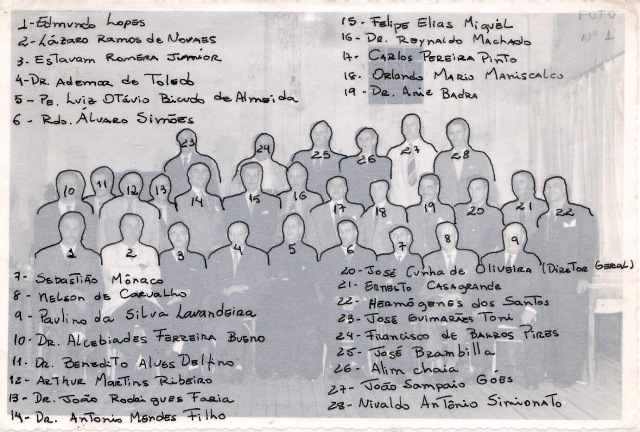 1-Edmundo Lopes
2-Lázaro Ramos de Novaes
3-Estavam Romera Junior
4-Dr. Ademar de Toledo
5-Pe. Luiz Otávio Bicudo de Almeida
6-Rdo. Álvaro Simões
15-Felipe Elias Miguel
16-Dr. Reynaldo Machado
17-Carlos Pereira Pinto
18-Orlando Mario Maniscalco
19-Dr. Aniz Badra
FOTO
Nº 1
23 24 25 26 27 28
10 11 12 13 14 15 16 17 18 19 20 21 22
1 2 3 4 5 6 7 8 9
7-Sebastião Mônaco
8-Nelson de Carvalho
9-Paulino da Silva Lavandeira
10-Dr. Alcebiades Ferreira Bueno
11-Dr. Benedito Alves Delfino
12-Arthur Martins Ribeiro
13-Dr. João Rodrigues Faria
14-Dr. Antonio Mendes Filho
20-José Cunha de Oliveira (Diretor Geral)
21-Ernesto Casagrande
22-Hermógenes dos Santos
23-José Guimarães Toni
24-Francisco de Barros Pires
25-José Brambilla
26-Alim Chaia
27-João Sampaio Góes
28-Nivaldo Antônio Simionato